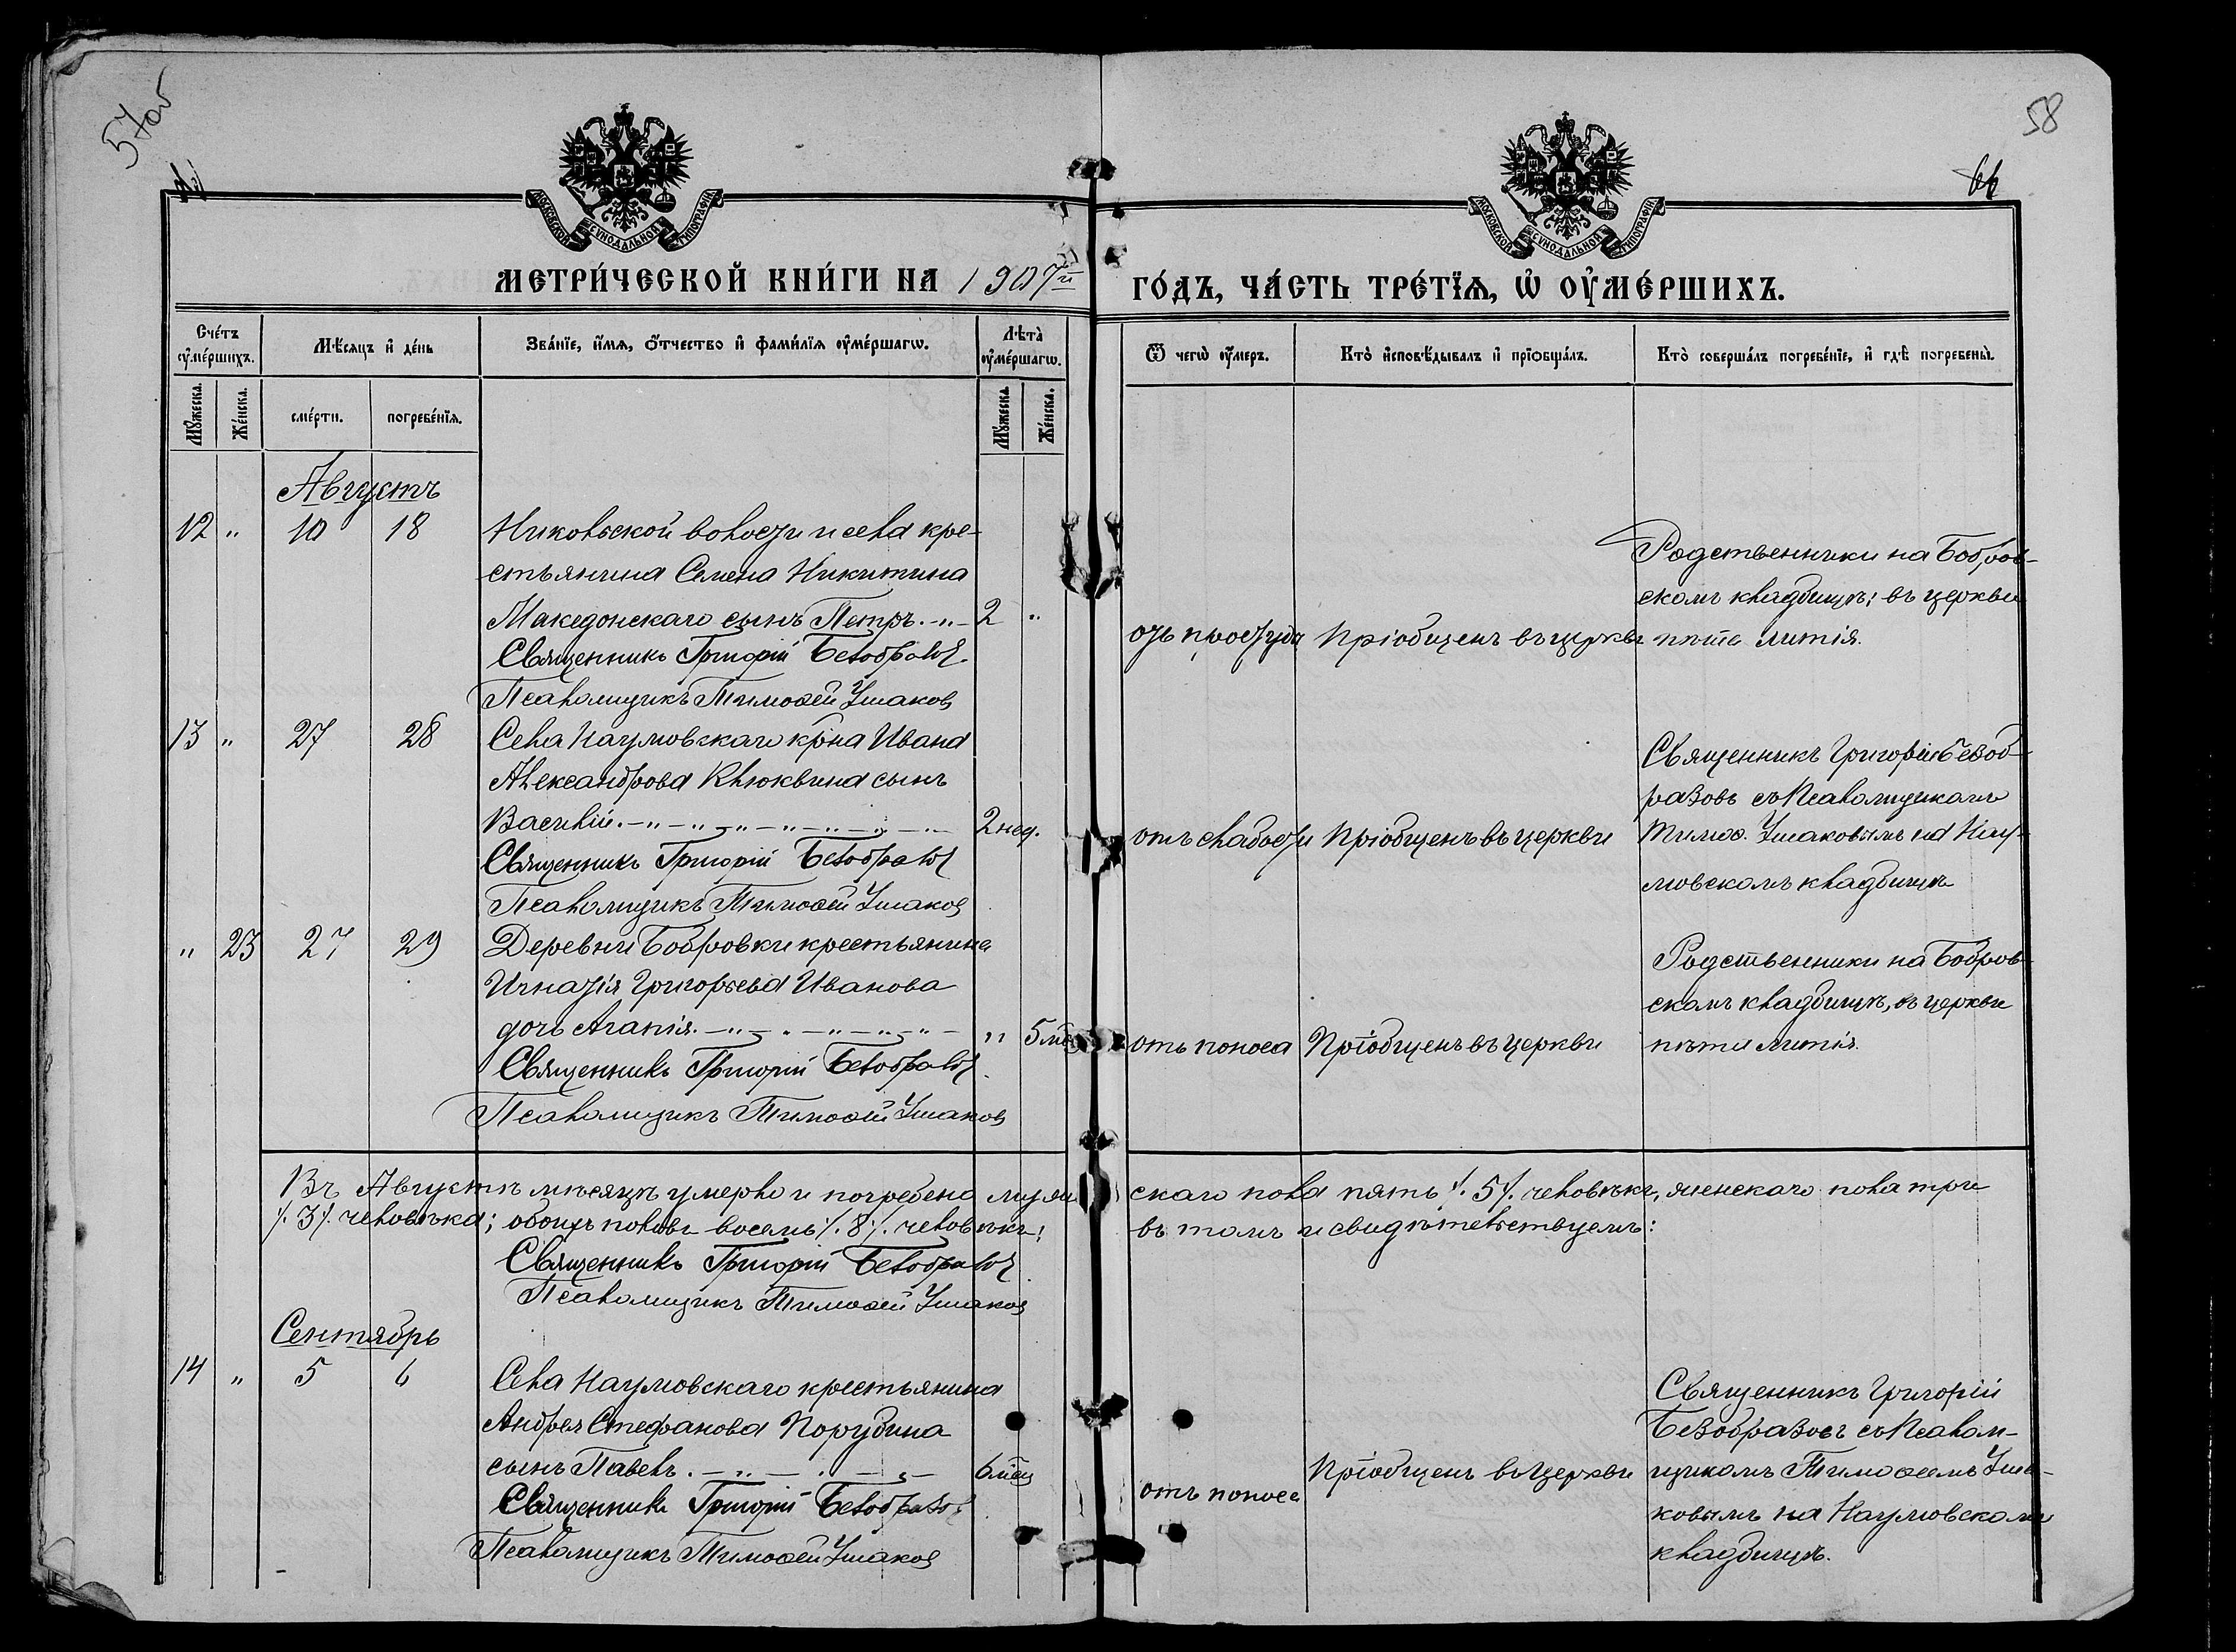 57об
58
МОСКОВСКОЙ СѴНОДАЛЬНОЙ ТИПОГРАФІИ
МОСКОВСКОЙ СѴНОДАЛЬНОЙ ТИПОГРАФІИ
МЕТРИ́ЧЕСКОЙ КНИ́ГИ НА 1907й
ГО́ДЪ, ЧА́СТЬ ТРЕ́ТЇѦ, Ѡ҆ ОУ҆МЕ́РШИХЪ.
Сче́тъ оу҆ме́ршихъ.
Мꙋ́жеска.
Же́нска.
Мѣ́сѧцъ и҆ де́нь
сме́рти.
погребе́нїѧ.
Зва́нїе, и҆́мѧ, о҆́тчество и҆ фами́лїѧ оу҆ме́ршагѡ.
Лѣ́та̀ оу҆ме́ршагѡ.
Мꙋ́жеска.
Же́нска.
Ѿ чегѡ̀ оу҆́меръ.
Кто̀ и҆сповѣ́дывалъ и҆ прїѡбща́лъ.
Кто̀ соверша́лъ погребе́нїе, и҆ гдѣ̀ погребены̀.
Августъ
12 " 10 18
Никольской волости и села кре-
стьянина Семена Никитина
Македонскаго сынъ Петръ. 2 "
Священникъ Григорій Безобразовъ
Псаломщикъ Тимоѳей Ушаковъ
отъ простуды
Пріобщенъ въ церкви
Родственники на Бобров-
скомъ кладбищѣ; въ церкви
пѣта литія.
13 " 27 28
Села Наумовскаго кр-на Ивана
Александрова Клюквина сынъ
Василій. 2 нед.
Священникъ Григорій Безобразовъ
Псаломщикъ Тимоѳей Ушаковъ
отъ слабости
Пріобщенъ въ церкви
Священникъ Григорій Безоб-
разовъ съ Псаломщикомъ
Тимоѳ. Ушаковымъ на Нау-
мовскомъ кладбищѣ
" 23 27 29
Деревни Бобровки крестьянина
Игнатія Григорьева Иванова
дочь Агапія. " 5 мѣс
Священникъ Григорій Безобразовъ
Псаломщикъ Тимоѳей Ушаковъ
отъ поноса
Пріобщенъ въ церкви
Родственники на Бобров-
скомъ кладбищѣ, въ церкви
пѣта литія.
Въ Августѣ мѣсяцѣ умерло и погребено мужескаго пола пять /. 5 /. человѣкъ, женскаго пола три
/. 3 /. человѣка; обоихъ половъ восемь /. 8 /. человѣкъ; въ томъ и свидѣтельствуемъ:
Священникъ Григорій Безобразовъ
Псаломщикъ Тимоѳей Ушаковъ
Сентябрь
14 " 5 6
Села Наумовскаго крестьянина
Андрея Стефанова Порубина
сынъ Павелъ. 6 мѣсц
Священникъ Григорій Безобразовъ
Псаломщикъ Тимоѳей Ушаковъ
отъ поноса
Пріобщенъ въ церкви
Священникъ Григорій
Безобразовъ съ Псалом-
щикомъ Тимоѳеемъ Уша-
ковымъ на Наумовскомъ
кладбищѣ.